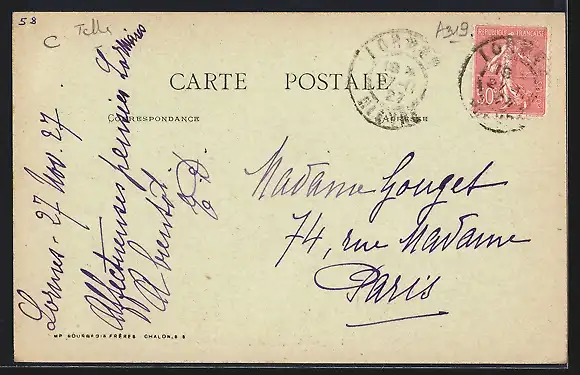 58
C Telle
A319.
REPUBLIQUE FRANÇAISE
50
LORMES
NIEVRE
CARTE POSTALE
CORRESPONDANCE
ADRESSE
Lormes - 27 Nov. 27.
Affectueuses pensées
A bientôt.
E. D.
Madame Gouget
74, rue Madame
Paris
IMP BOURGEOIS FRÈRES CHALON, S S